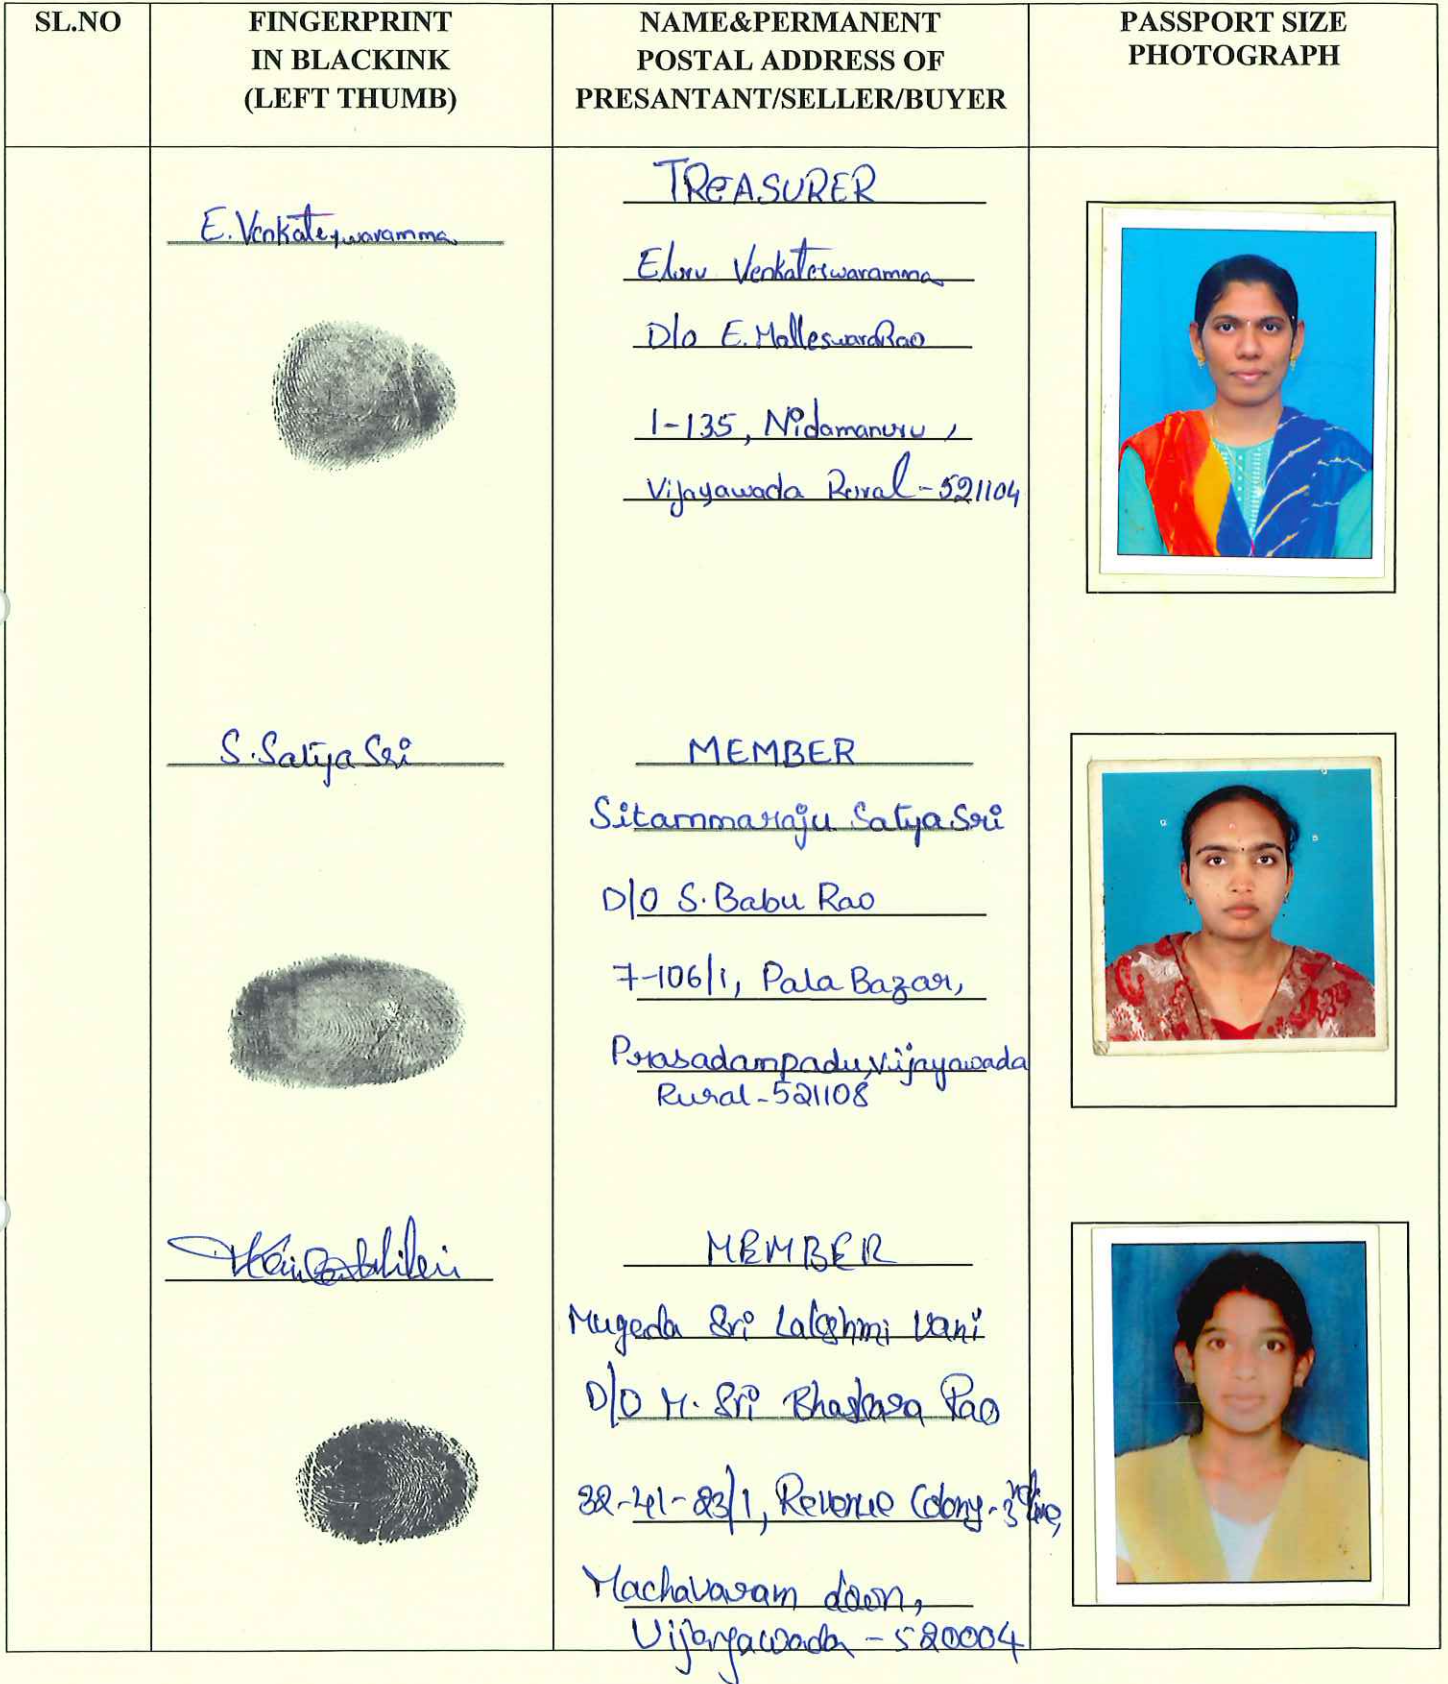 SL.NO
FINGERPRINT
IN BLACKINK
(LEFT THUMB)
NAME&PERMANENT
POSTAL ADDRESS OF
PRESANTANT/SELLER/BUYER
PASSPORT SIZE
PHOTOGRAPH
E. Venkateswaramma
TREASURER
Eluru Venkateswaramma
D/o E. MalleswaraRao
1-135, Nidamanuru,
Vijayawada Rural-521104
S. Satya Sri
MEMBER
Sitammaraju Satya Sri
D/O S. Babu Rao
7-106/1, Pala Bazar,
Prasadampadu, Vijayawada
Rural-521108
MEMBER
Mugeda Sri Lakshmi Vani
D/O M. Sri Bhaskara Rao
32-41-23/1, Revenue Colony-3rd line,
Machavaram down,
Vijayawada - 520004